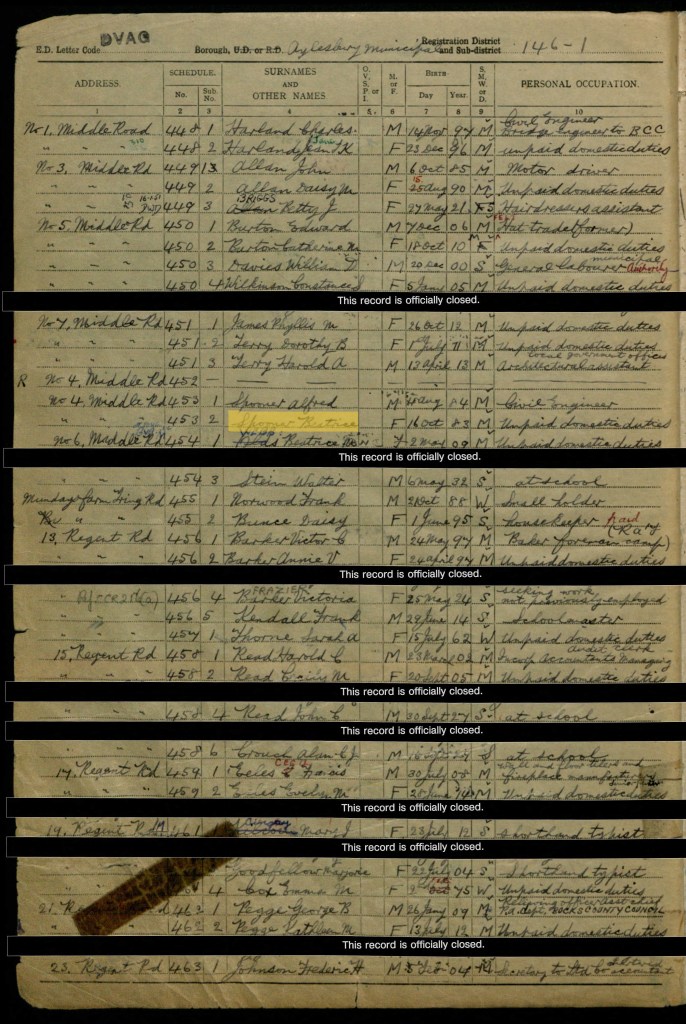 DVAG
E.D. Letter Code Borough, U.D. or R.D. Aylesbury Municipal Registration District and Sub-district 146-1
ADDRESS. SCHEDULE. No. Sub. No. SURNAMES AND OTHER NAMES O. V. S. P. or I. M. or F. BIRTH Day Year S. M. W. or D. PERSONAL OCCUPATION.
1 2 3 4 5 6 7 8 9 10
No 1. Middle Road 448 1 Harland Charles M 14 Nov 97 M Civil Engineer Bridge Engineer to BCC
" " 448 2 Harland K F 23 Dec 96 M unpaid domestic duties
No 3. Middle Rd 449 1 Allan John M 6 Oct 85 M Motor driver
449 2 Allan Daisy M F 25 Aug 90 M Unpaid domestic duties
449 3 BRIGGS Allan Kitty J F 27 May 21 S Hairdressers assistant
No 5. Middle Rd 450 1 Burton Edward M 7 Dec 06 M Hat trade (former)
" " 450 2 Burton Catherine M F 18 Oct 10 Unpaid domestic duties
" " 450 3 Davies William T M 20 Dec 00 S General labourer municipal Authority
" " 450 4 Wilkinson Constance F 5 June 05 M Unpaid domestic duties
This record is officially closed.
No 7. Middle Rd 451 1 James Phyllis M F 26 Oct 12 M Unpaid domestic duties
" " 451 2 Terry Dorothy B F 1 July 11 M Unpaid domestic duties
" " 451 3 Terry Harold A M 12 April 13 M Architectural assistant local government offices
R No 4. Middle Rd 452
No 4. Middle Rd 453 1 Spooner Alfred M Aug 84 M Civil Engineer
" " 453 2 Spooner Beatrice F 16 Oct 83 M Unpaid domestic duties
No 6. Middle Rd 454 1 Beatrice F 2 May 09 M Unpaid domestic duties
This record is officially closed.
" " 454 3 Stein Walter M 6 May 32 S at school
Mundays farm Tring Rd 455 1 Norwood Frank M 21 Oct 88 W Small holder
" " 455 2 Bunce Daisy F 1 June 95 S Housekeeper
13. Regent Rd 456 1 Barker Victor C M 24 May 97 M Baker
" " 456 2 Barker Annie V F 24 April 97 M Unpaid domestic duties
This record is officially closed.
456 4 FRAZIER Barker Victoria F 25 May 24 S seeking work not previously employed
456 5 Kendall Frank M 29 June 14 S Schoolmaster
457 1 Thorne Sarah A F 15 July 62 W Unpaid domestic duties
15. Regent Rd 458 1 Read Harold C M 02 M Incorp Accountants Managing audit clerk
" " 458 2 Read M F 20 Sept 05 M Unpaid domestic duties
This record is officially closed.
" " 458 4 Read John C M 30 Sept 27 S at school
This record is officially closed.
458 6 Crouch Alan C J M S at school
17. Regent Rd 459 1 Eeles Francis M 30 July 08 M fireplace
" " 459 2 Eeles Evelyn M F M Unpaid domestic duties
This record is officially closed.
19. Regent Rd 461 Mary J F 23 July 12 S Shorthand typist
This record is officially closed.
Goodfellow Marjorie F 22 July 04 S Shorthand typist
4 Cox Emma M F 75 W Unpaid domestic duties
21. 462 1 Pegge George B M 26 Jany 09 M Relieving officer asst chief P.A. dept. BUCKS COUNTY COUNCIL
462 2 Pegge Kathleen M F 13 July 12 M Unpaid domestic duties
This record is officially closed.
23. Regent Rd 463 1 Johnson Frederic H M 5 Feb 04 M Secretary to Ltd Co accountant